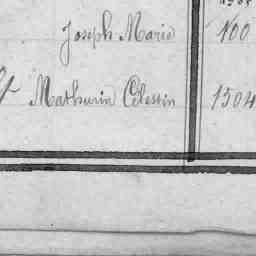 Joseph Marie 100
Mathurin Célestin 1504